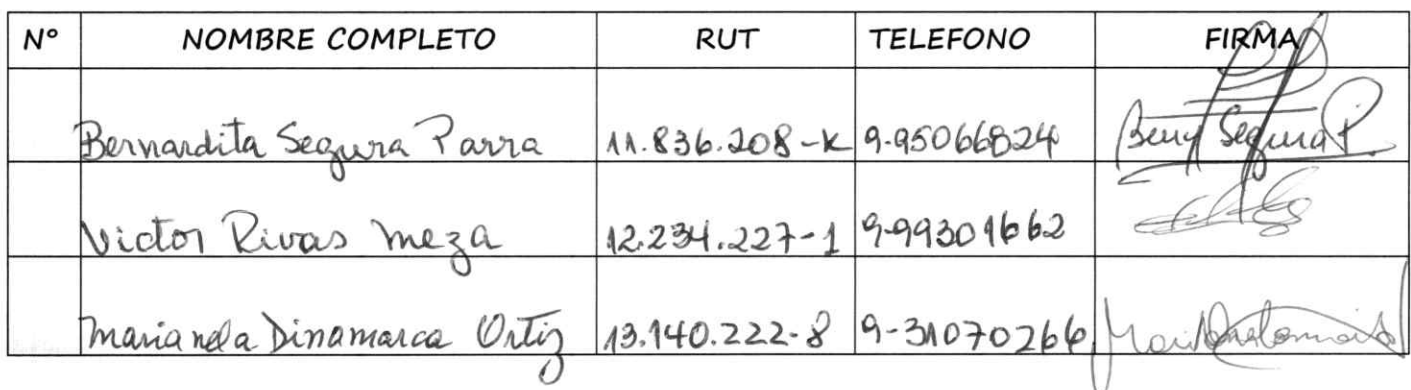 N° NOMBRE COMPLETO RUT TELEFONO FIRMA
Bernardita Segura Parra 11.836.208-K 9-95066824 Segura P.
Victor Rivas meza 12.234.227-1 9-99301662
Marianela Dinamarca Ortiz 13.140.222-8 9-31070266